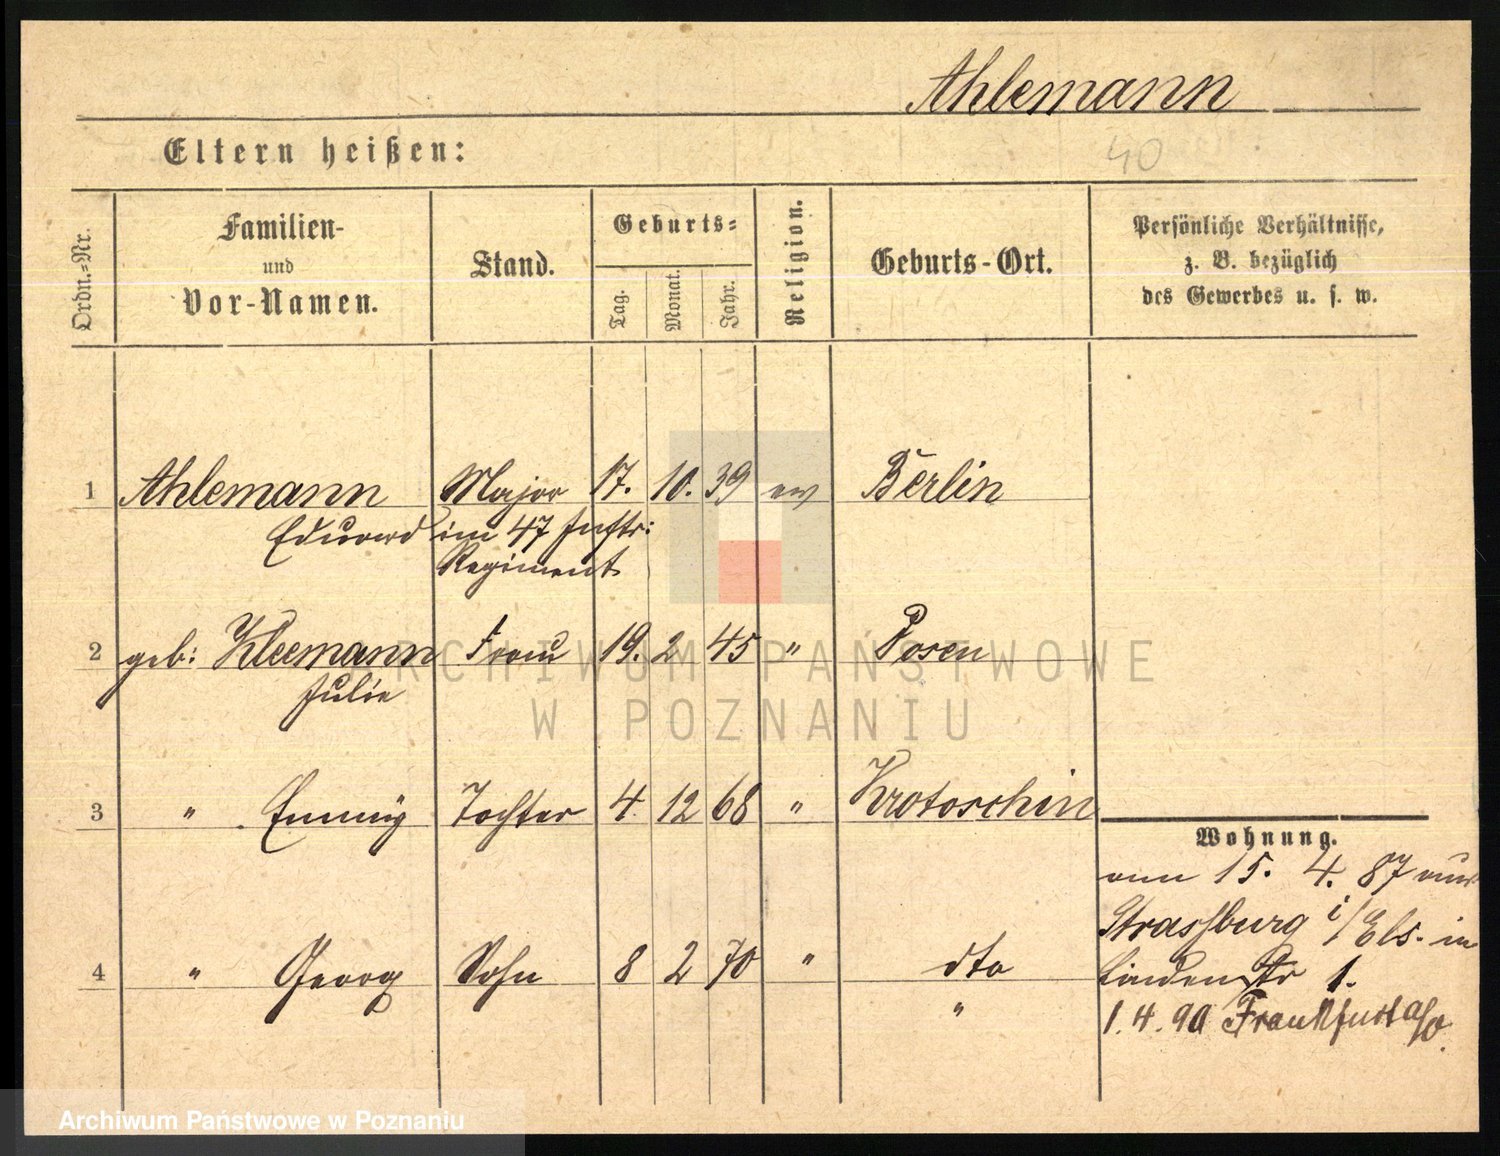 Ahlemann
40
Eltern heißen:
Ordn.=Nr.
Familien-
und
Vor-Namen.
Stand.
Geburts=
Tag.
Monat.
Jahr.
Religion.
Geburts-Ort.
Persönliche Verhältnisse,
z. B. bezüglich
des Gewerbes u. s. w.
1 Ahlemann Major 17. 10. 39 ev Berlin
Eduard im 47 Inftr:
Regiment
2 geb: Kleemann Frau 19. 2 45 " Posen
Julie
3 " Emmy Tochter 4 12 68 " Krotoschin
4 " Georg Sohn 8 2 70 " dto
"
Wohnung.
15. 4. 87 aus
Strassburg i/Els. in
Lindenstr 1.
1. 4. 90 Frankfurt a/o.
ARCHIWUM PAŃSTWOWE
W POZNANIU
Archiwum Państwowe w Poznaniu